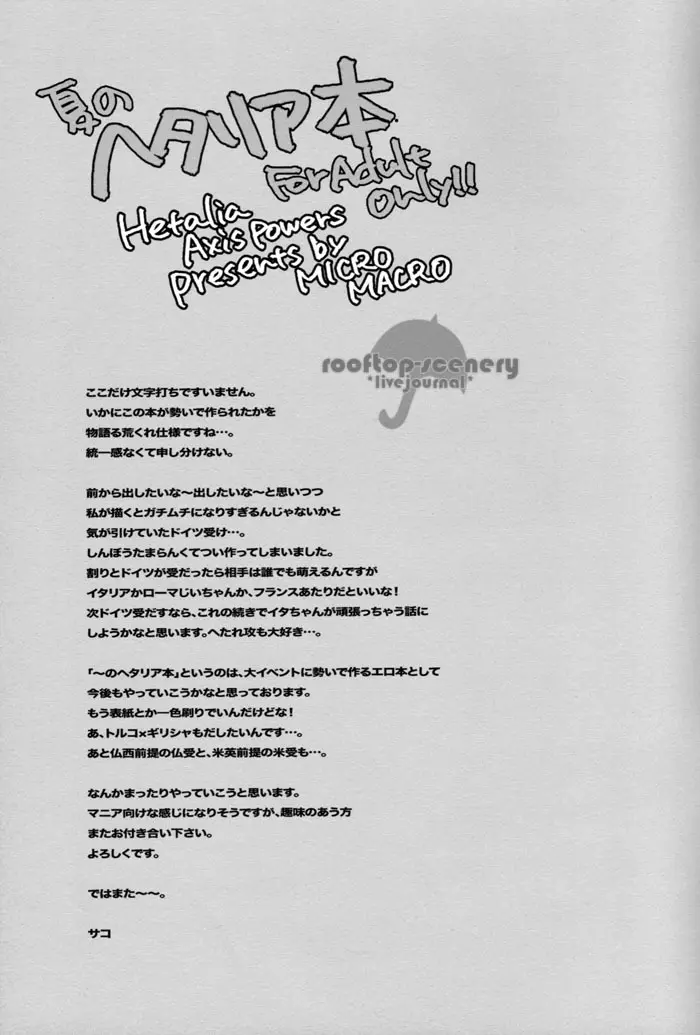 夏の
ヘタリア本
For Adult
Only!!
Hetalia
Axis Powers
presents by
MICRO
MACRO
rooftop-scenery
*livejournal*
ここだけ文字打ちですいません。
いかにこの本が勢いで作られたかを
物語る荒くれ仕様ですね…。
統一感なくて申し分けない。
前から出したいな〜出したいな〜と思いつつ
私が描くとガチムチになりすぎるんじゃないかと
気が引けていたドイツ受け…。
しんぼうたまらんくてつい作ってしまいました。
割りとドイツが受だったら相手は誰でも萌えるんですが
イタリアかローマじいちゃんか、フランスあたりだといいな!
次ドイツ受だすなら、これの続きでイタちゃんが頑張っちゃう話に
しようかなと思います。へたれ攻も大好き…。
「〜のヘタリア本」というのは、大イベントに勢いで作るエロ本として
今後もやっていこうかなと思っております。
もう表紙とか一色刷りでいんだけどな!
あ、トルコ×ギリシャもだしたいんです…。
あと仏西前提の仏受と、米英前提の米受も…。
なんかまったりやっていこうと思います。
マニア向けな感じになりそうですが、趣味のあう方
またお付き合い下さい。
よろしくです。
ではまた〜〜。
サコ